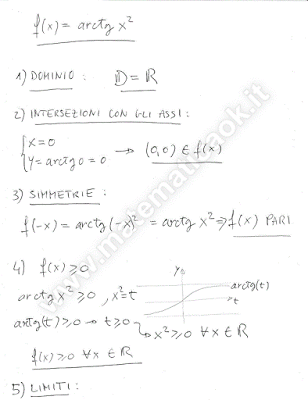 f(x) = arctg x²
1) DOMINIO : D = ℝ
2) INTERSEZIONI CON GLI ASSI :
{ x = 0
{ y = arctg 0 = 0 → (0,0) ∈ f(x)
3) SIMMETRIE :
f(-x) = arctg (-x)² = arctg x² ⇒ f(x) PARI
4) f(x) ≥ 0
y
arctg x² ≥ 0 , x² = t
arctg(t)
t
arctg(t) ≥ 0 → t ≥ 0
↳ x² ≥ 0 ∀x ∈ ℝ
f(x) ≥ 0 ∀x ∈ ℝ
5) LIMITI :
www.matematicaok.it